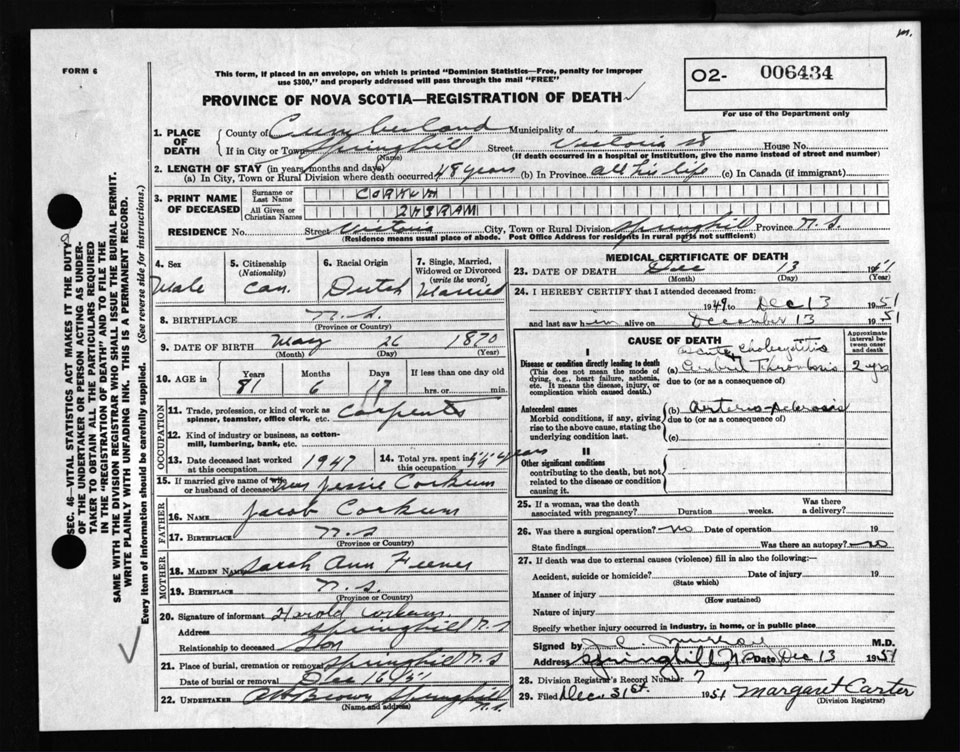 m.
FORM 6
This form, if placed in an envelope, on which is printed "Dominion Statistics—Free, penalty for improper
use $300," and properly addressed will pass through the mail "FREE"
O2- 006434
For use of the Department only
PROVINCE OF NOVA SCOTIA—REGISTRATION OF DEATH
1. PLACE OF DEATH
County of Cumberland Municipality of
If in City or Town Springhill (Name) Street Victoria St House No.
(If death occurred in a hospital or institution, give the name instead of street and number)
2. LENGTH OF STAY (in years, months and days)
(a) In City, Town or Rural Division where death occurred 48 years (b) In Province all his life (c) In Canada (if immigrant)
3. PRINT NAME OF DECEASED
Surname or Last Name CORKUM
All Given or Christian Names
RESIDENCE No. Street Victoria City, Town or Rural Division Springhill Province N.S.
(Residence means usual place of abode. Post Office Address for residents in rural parts not sufficient)
4. Sex Male
5. Citizenship (Nationality) Can.
6. Racial Origin Dutch
7. Single, Married, Widowed or Divorced (write the word) Married
8. BIRTHPLACE N.S. (Province or Country)
9. DATE OF BIRTH May 26 1870
(Month) (Day) (Year)
10. AGE in Years 81 Months 6 Days 17 If less than one day old hrs. or min.
OCCUPATION
11. Trade, profession, or kind of work as spinner, teamster, office clerk, etc. Carpenter
12. Kind of industry or business, as cotton-mill, lumbering, bank, etc.
13. Date deceased last worked at this occupation 1947
14. Total yrs. spent in this occupation 44 years
15. If married give name of wife or husband of deceased Mrs Jessie Corkum
FATHER
16. NAME Jacob Corkum
17. BIRTHPLACE N.S. (Province or Country)
MOTHER
18. MAIDEN NAME Sarah Ann Feener
19. BIRTHPLACE N.S. (Province or Country)
20. Signature of informant Harold Corkum
Address Springhill N.S
Relationship to deceased Son
21. Place of burial, cremation or removal Springhill N.S
Date of burial or removal Dec 16 51
22. UNDERTAKER Brown Springhill N.S.
(Name and address)
MEDICAL CERTIFICATE OF DEATH
23. DATE OF DEATH Dec 13 1951
(Month) (Day) (Year)
24. I HEREBY CERTIFY that I attended deceased from:
1949 to Dec 13 1951
and last saw him alive on December 13 1951
CAUSE OF DEATH
Approximate interval between onset and death
I
Disease or condition directly leading to death
(This does not mean the mode of dying, e.g., heart failure, asthenia, etc. It means the disease, injury, or complication which caused death.)
Acute
(a) Thrombosis 2 yrs
due to (or as a consequence of)
Antecedent causes
Morbid conditions, if any, giving rise to the above cause, stating the underlying condition last.
(b) Arterio-sclerosis
due to (or as a consequence of)
(c)
II
Other significant conditions
contributing to the death, but not related to the disease or condition causing it.
25. If a woman, was the death associated with pregnancy? Duration weeks. Was there a delivery?
26. Was there a surgical operation? no Date of operation 19
State findings Was there an autopsy? no
27. If death was due to external causes (violence) fill in also the following:—
Accident, suicide or homicide? Date of injury 19
(State which)
Manner of injury
(How sustained)
Nature of injury
Specify whether injury occurred in industry, in home, or in public place
Signed by M.D.
Address Springhill, N.S Date Dec 13 1951
28. Division Registrar's Record Number 7
29. Filed Dec. 31st. 1951 Margaret Carter
(Division Registrar)
SEC. 46—VITAL STATISTICS ACT MAKES IT THE DUTY
OF THE UNDERTAKER OR PERSON ACTING AS UNDER-
TAKER TO OBTAIN ALL THE PARTICULARS REQUIRED
IN THE "REGISTRATION OF DEATH" AND TO FILE THE
SAME WITH THE DIVISION REGISTRAR WHO SHALL ISSUE THE BURIAL PERMIT.
WRITE PLAINLY WITH UNFADING INK. THIS IS A PERMANENT RECORD.
Every item of information should be carefully supplied. (See reverse side for instructions.)